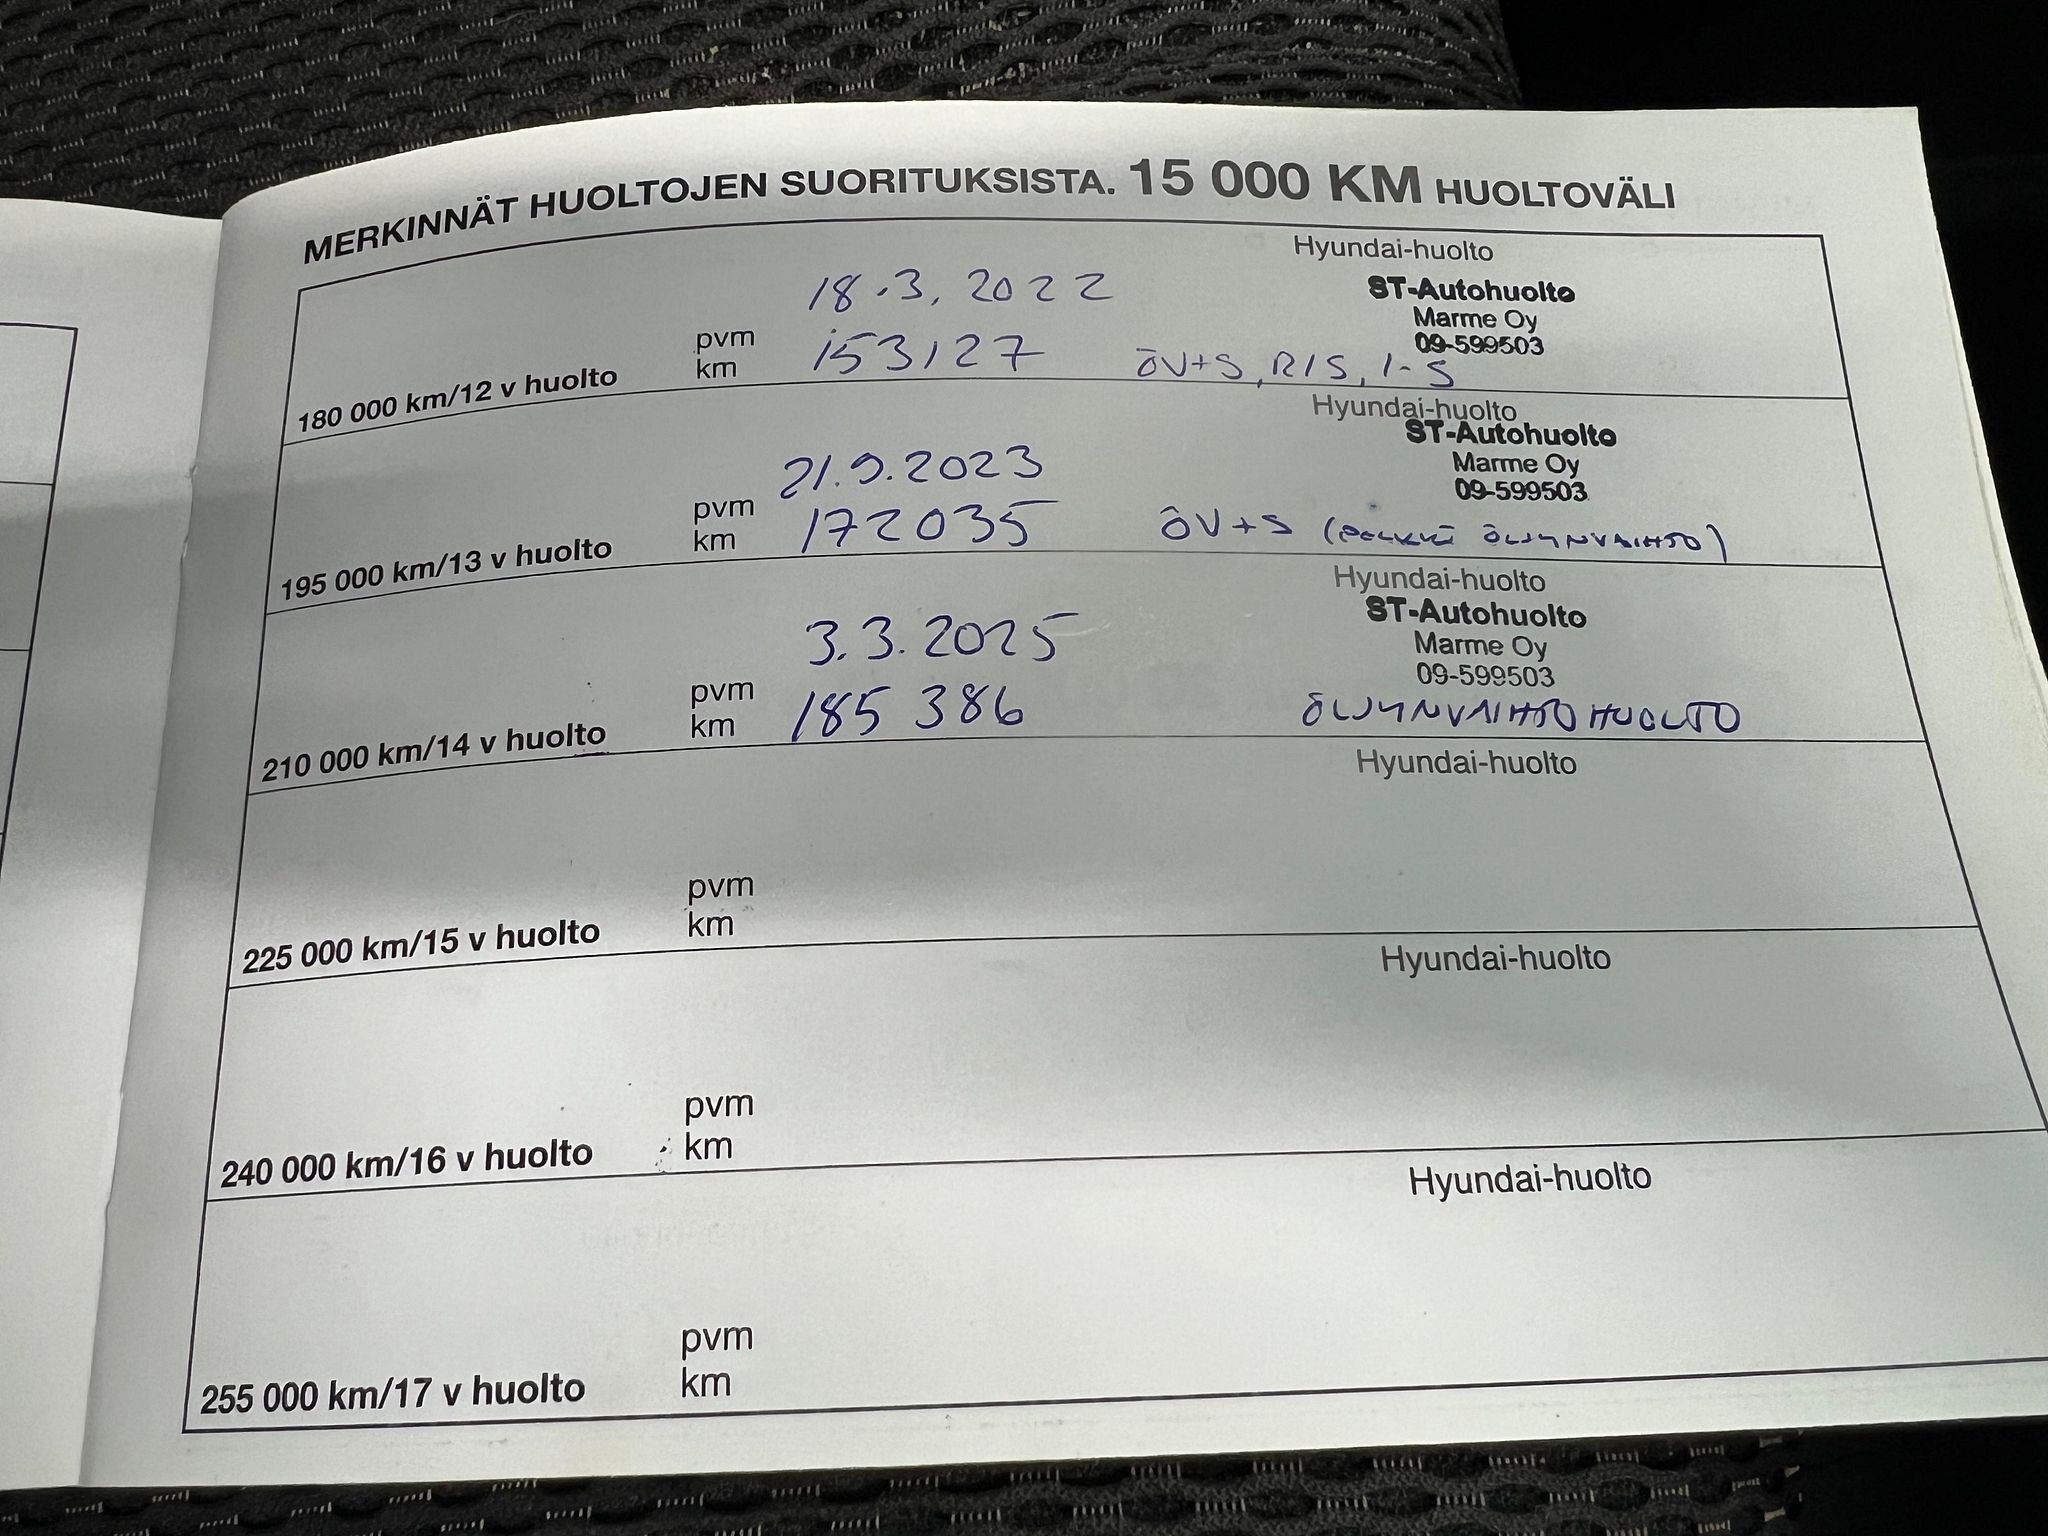 MERKINNÄT HUOLTOJEN SUORITUKSISTA. 15 000 KM HUOLTOVÄLI
Hyundai-huolto
18.3.2022
ST-Autohuolto
Marme Oy
pvm
09-599503
180 000 km/12 v huolto
km
153127
ÖV+S, R/S, 1-S
Hyundai-huolto
ST-Autohuolto
21.9.2023
Marme Oy
pvm
09-599503
195 000 km/13 v huolto
km
172035
ÖV+S (PELKKÄ ÖLJYNVAIHTO)
Hyundai-huolto
ST-Autohuolto
3.3.2025
Marme Oy
pvm
09-599503
210 000 km/14 v huolto
km
185 386
ÖLJYNVAIHTOHUOLTO
Hyundai-huolto
pvm
225 000 km/15 v huolto
km
Hyundai-huolto
pvm
240 000 km/16 v huolto
km
Hyundai-huolto
pvm
255 000 km/17 v huolto
km